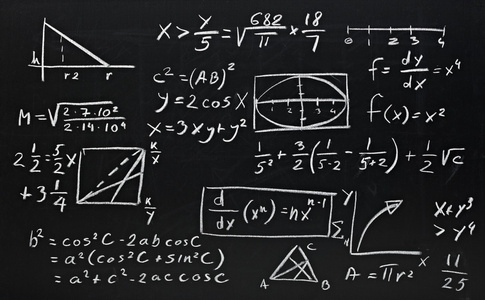 h
r2 r
X > y/5 = √(682/π) × 18/7
0 1 2 3 4
c² = (AB)²
y = 2 cos X
x = 3xy + y²
1 2 3 4
f = dy/dx = x⁴
f(x) = x²
M = √((2·7·10²)/(2·14·10⁴))
2 1/2 = 5/2 x
+ 3 1/4
K/X
K/y
1/5² + 3/2 (1/(5-2) - 1/(5+2)) + 1/2 √c
d/dx (xⁿ) = nxⁿ⁻¹
y
Σ
x
x + y³
> y⁴
b² = cos²C - 2ab cosC
= a²(cos²C + sin²C)
= a² + c² - 2ac cosC
C
A B
A = πr²
11/25